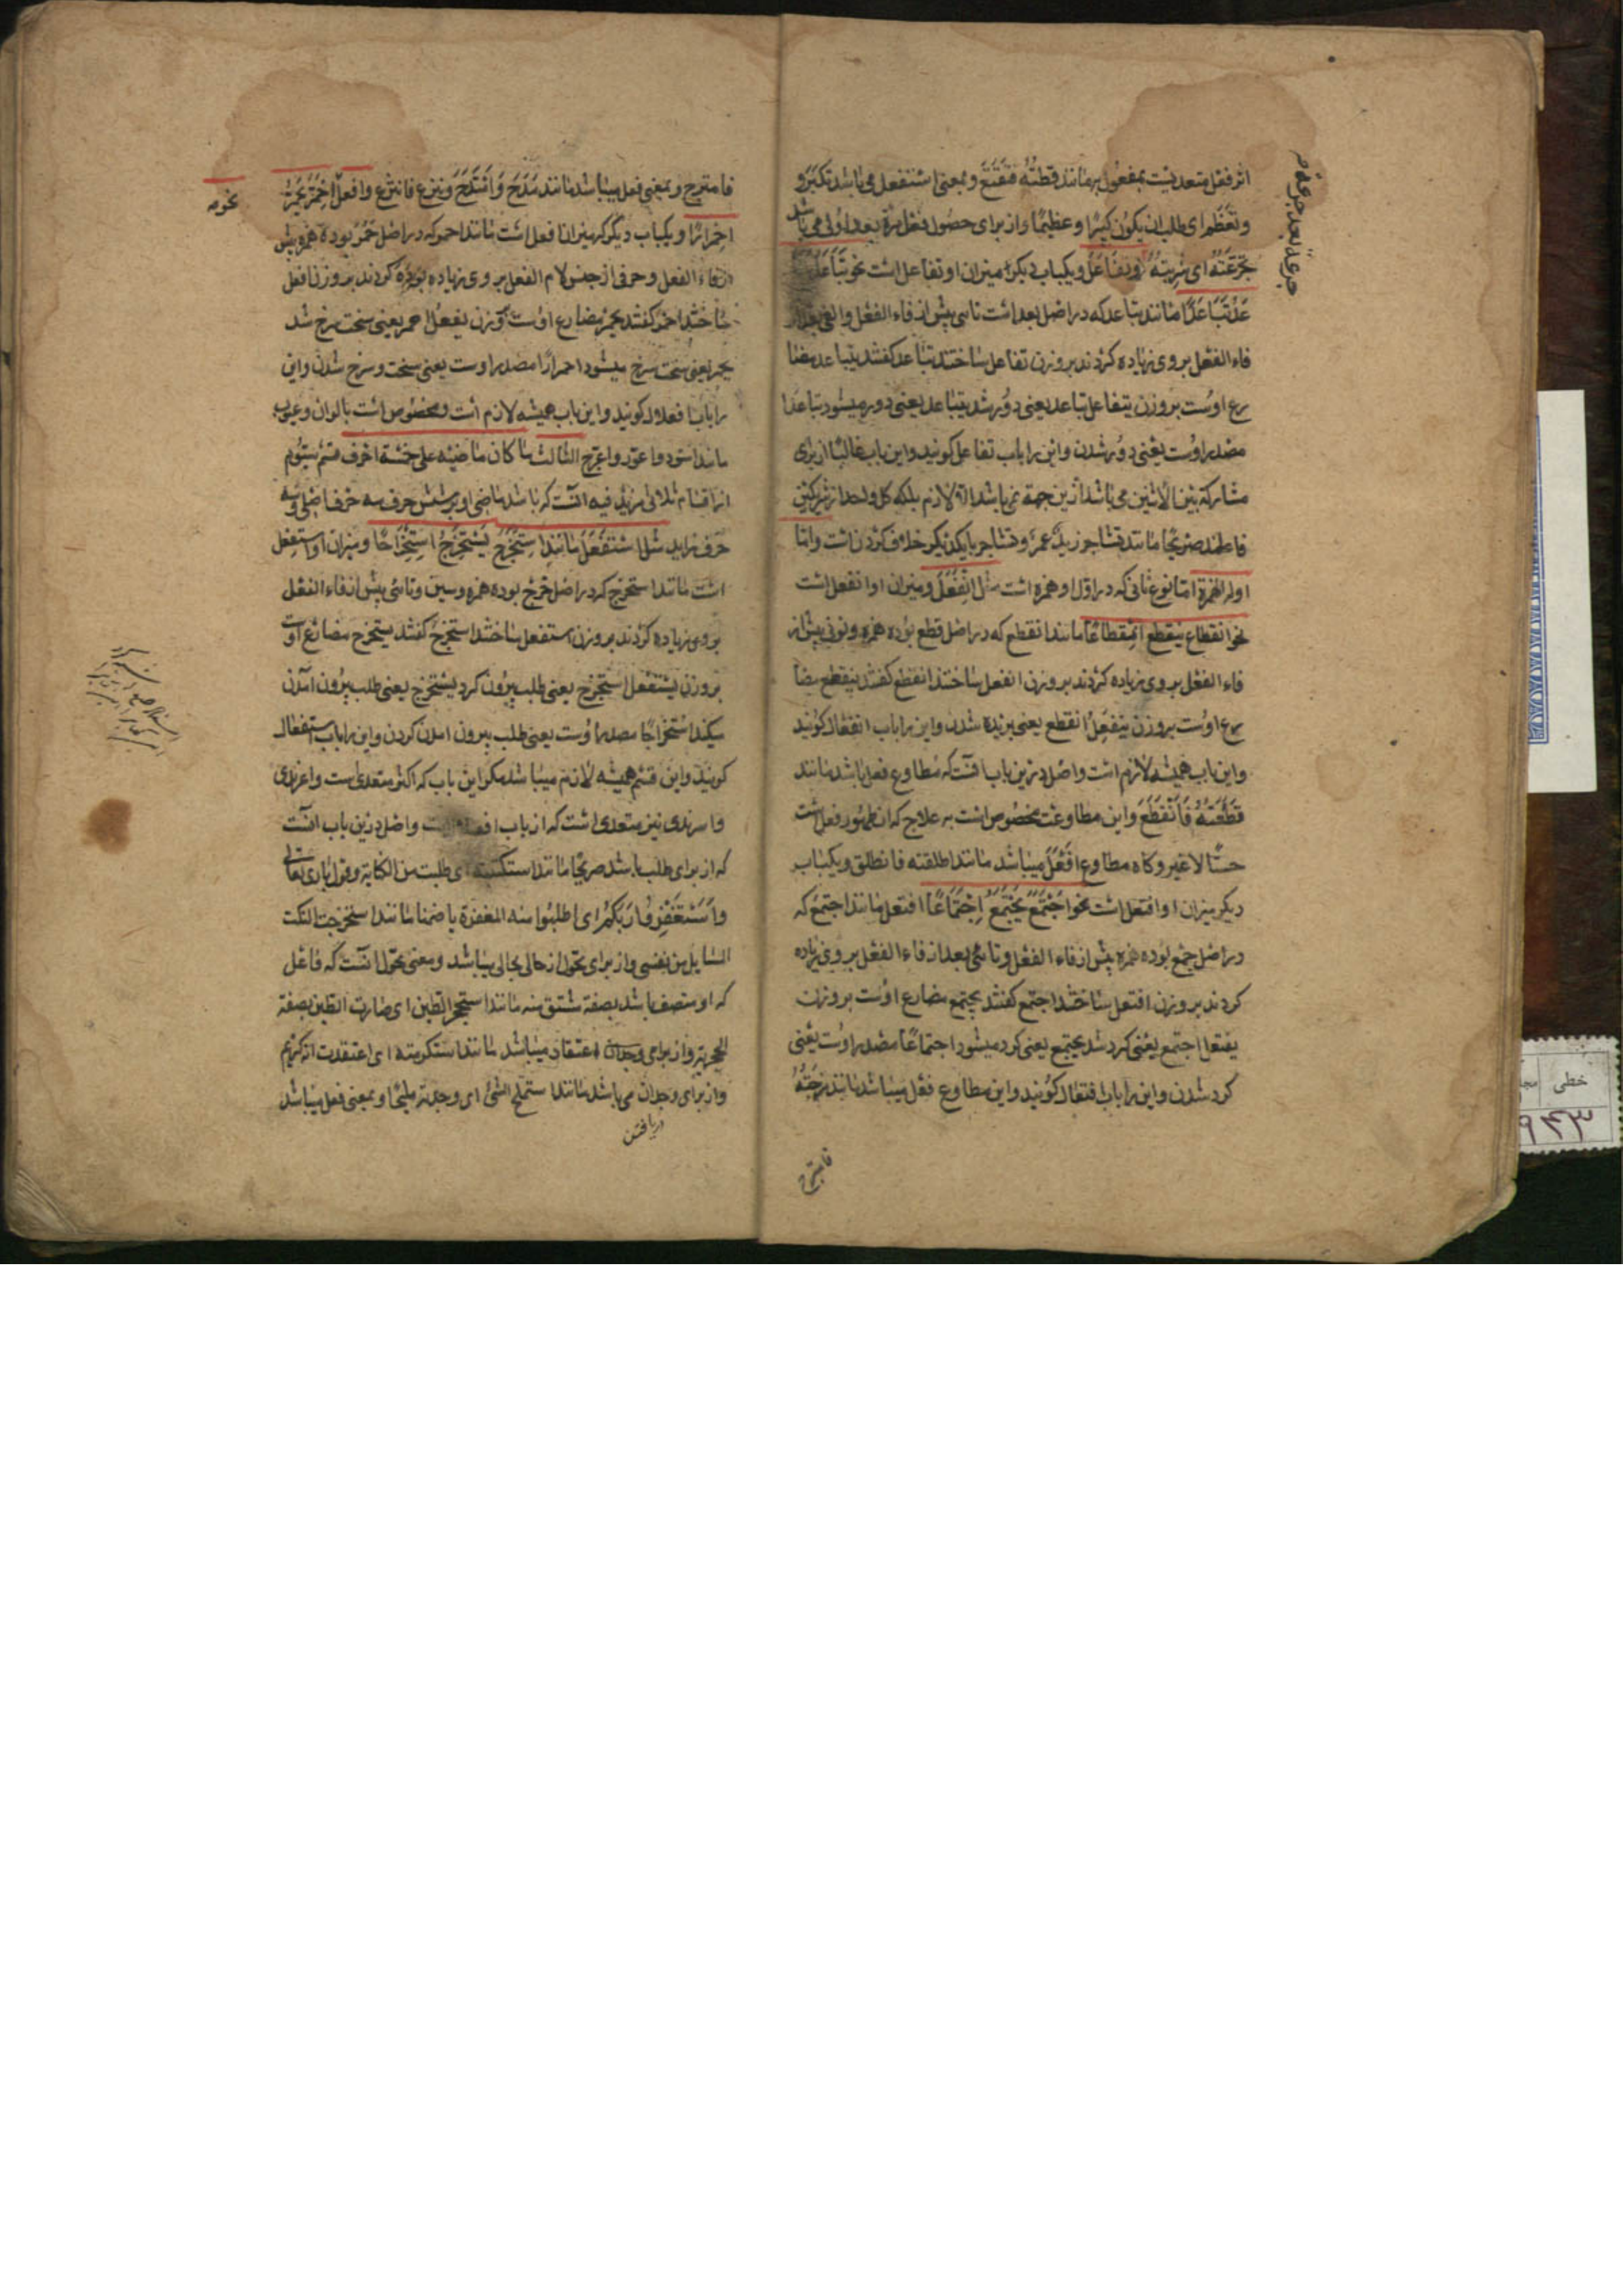 اثر فعل متعدیست بمفعول به مانند قطعته فتقطع و بمعنی استفعل می باشد تکبر و
و تعظم ای طلب ان یکون کبیرا و عظیما و از برای حصول فعل مرة بعد اولی می باشد
تجرعته ای شربته و تفاعل و یکباب دیگر میزان او تفاعل است نحو تباعد
تباعدا مانند تباعد که در اصل بعد است تائی پیش از فاء الفعل و الفی بعد از
فاء الفعل بروی زیاده کردند بروزن تفاعل ساختند تباعد گفتند یتباعد مضا
رع اوست بروزن یتفاعل تباعد یعنی دور شد یتباعد یعنی دور میشود تباعدا
مصدر اوست یعنی دور شدن و این را باب تفاعل گویند و این باب غالبا از برای
مشارکة بین الاثنین می باشد ازین جهة نمی باشد الا لازم بلکه کل واحد از شریکین
فاعلند صریحا مانند تشاجر زید و عمرو تشاجر بایکدیگر خلاف کردن است و اما
اوله الهمزة اما نوع ثانی که در اول او همزه است مثل انفعل و میزان او انفعل است
نحو انقطع ینقطع انقطاعا مانند انقطع که در اصل قطع بوده همزه و نونی پیش از
فاء الفعل بروی زیاده کردند بروزن انفعل ساختند انقطع گفتند ینقطع مضا
رع اوست بروزن ینفعل انقطع یعنی بریده شدن و این را باب انفعال گویند
و این باب همیشه لازم است و اصل درین باب آنست که مطاوع فعل باشد مانند
قطعته فانقطع و این مطاوعت مخصوص است به علاج که ان ظهور فعل است
حسا لا غیر و گاه مطاوع افعل میباشد مانند اطلقته فانطلق و یکباب
دیگر میزان او افتعل است نحو اجتمع یجتمع اجتماعا افتعل مانند اجتمع که
در اصل جمع بوده همزه پیش از فاء الفعل و تائی بعد از فاء الفعل بروی زیاده
کردند بروزن افتعل ساختند اجتمع گفتند یجتمع مضارع اوست بروزن
یفتعل اجتمع یعنی گرد شد یجتمع یعنی گرد میشود اجتماعا مصدر اوست یعنی
گرد شدن و این را باب افتعال گویند و این مطاوع فعل میباشد مانند مزجته
جرعة بعد جرعة
فامتزج
فامتزج و بمعنی فعل میباشد مانند مدح و امتدح و نزع فانتزع و افعل احمر یحمر
نحو
احمرارا و یکباب دیگر که میزان افعل است مانند احمر که در اصل حمر بوده همزه پیش
از فاء الفعل و حرفی از جنس لام الفعل بروی زیاده کردند بروزن افعل
ساختند احمر گفتند یحمر مضارع اوست بوزن یفعل احمر یعنی سخت سرخ شد
یحمر یعنی سخت سرخ میشود احمرارا مصدر اوست یعنی سخت و سرخ شدن و این
را باب افعلال گویند و این باب همیشه لازم است و مخصوص است بالوان و عیوب
مانند اسود و اعور و اعرج الثالث ما کان ماضیه علی خمسة احرف قسم سیوم
از اقسام ثلاثی مزید فیه آنست که باشد ماضی او بر شش حرف سه حرف اصلی و سه
حرف زاید مثل استفعل مانند استخرج یستخرج استخراجا و میزان او استفعل
است مانند استخرج که در اصل خرج بوده همزه و سین و تائی پیش از فاء الفعل
بروی زیاده کردند بروزن استفعل ساختند استخرج گفتند یستخرج مضارع اوست
بروزن یستفعل استخرج یعنی طلب بیرون کرد یستخرج یعنی طلب بیرون آمدن
میکند استخراجا مصدر اوست یعنی طلب بیرون آمدن کردن و این را باب استفعال
گویند و این قسم همیشه لازم میباشد مگر این باب که اکثر متعدی است و اغرندی
و اسرندی نیز متعدی است که از باب است و اصل درین باب آنست
که از برای طلب باشد صریحا مانند استکتبته ای طلبت من الکتابة و قول باری تعالی
و استغفروا ربکم ای اطلبوا منه المغفرة یا ضمنا مانند استخرجت النکت
السایل من نفسی و از برای تحول از حالی بحالی میباشد و معنی تحول آنست که فاعل
که او متصف باشد بصفة مشتق منه مانند استحجر الطین ای صارت الطین بصفة
الحجریة و از برای وجدان اعتقاد میباشد مانند استکرمته ای اعتقدت انه کریم
و از برای وجدان می باشد مانند استملح الشئ ای وجدته ملیحا و بمعنی فعل میباشد
دریافتن
خطی
۹۴۳